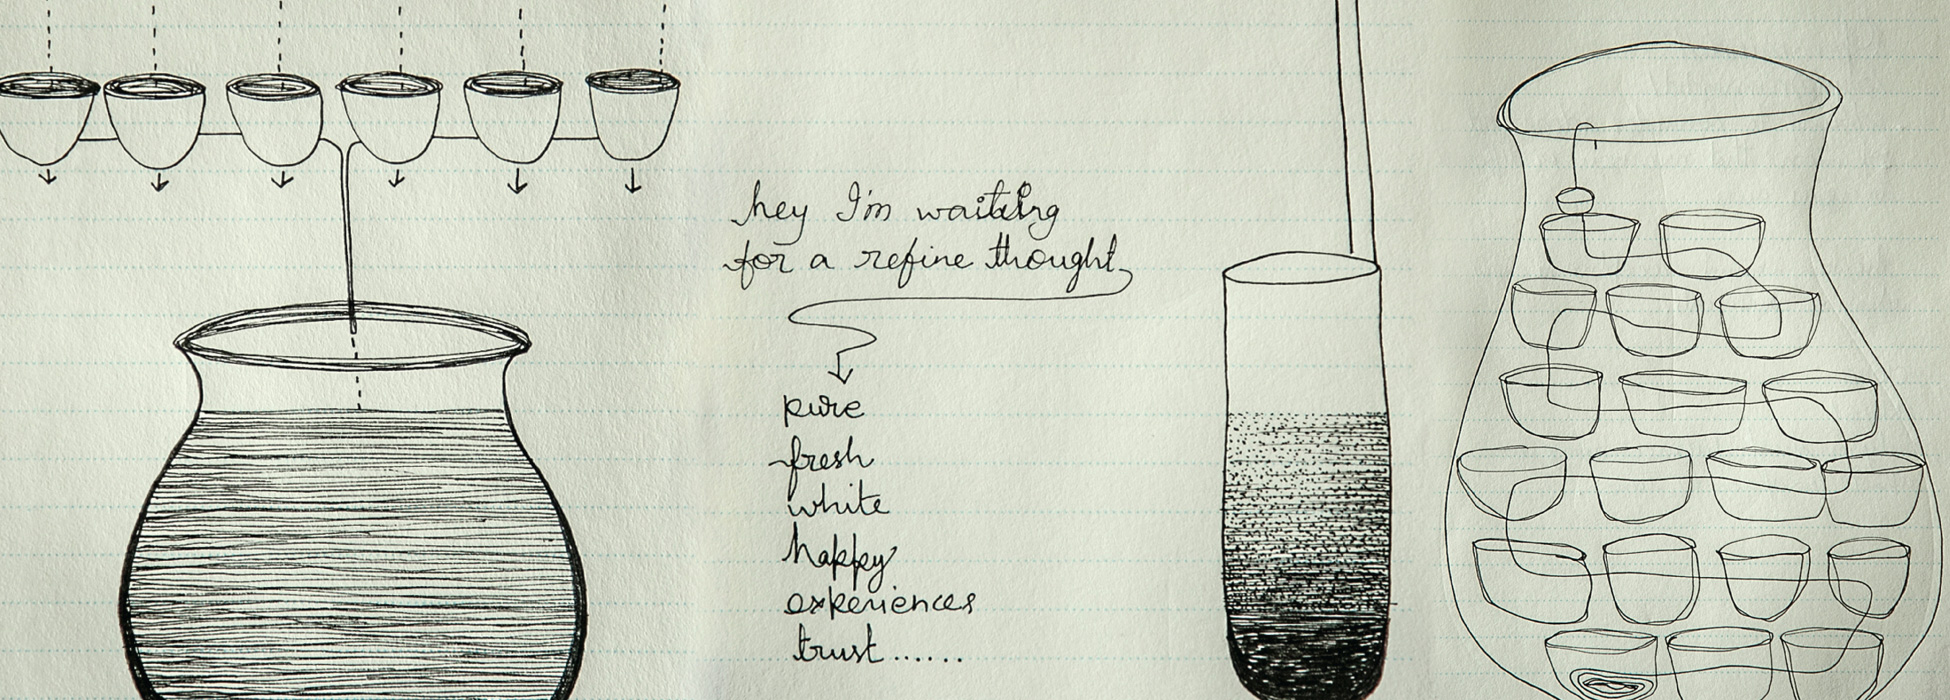 hey I'm waiting
for a refine thought
pure
fresh
white
happy
experiences
trust......